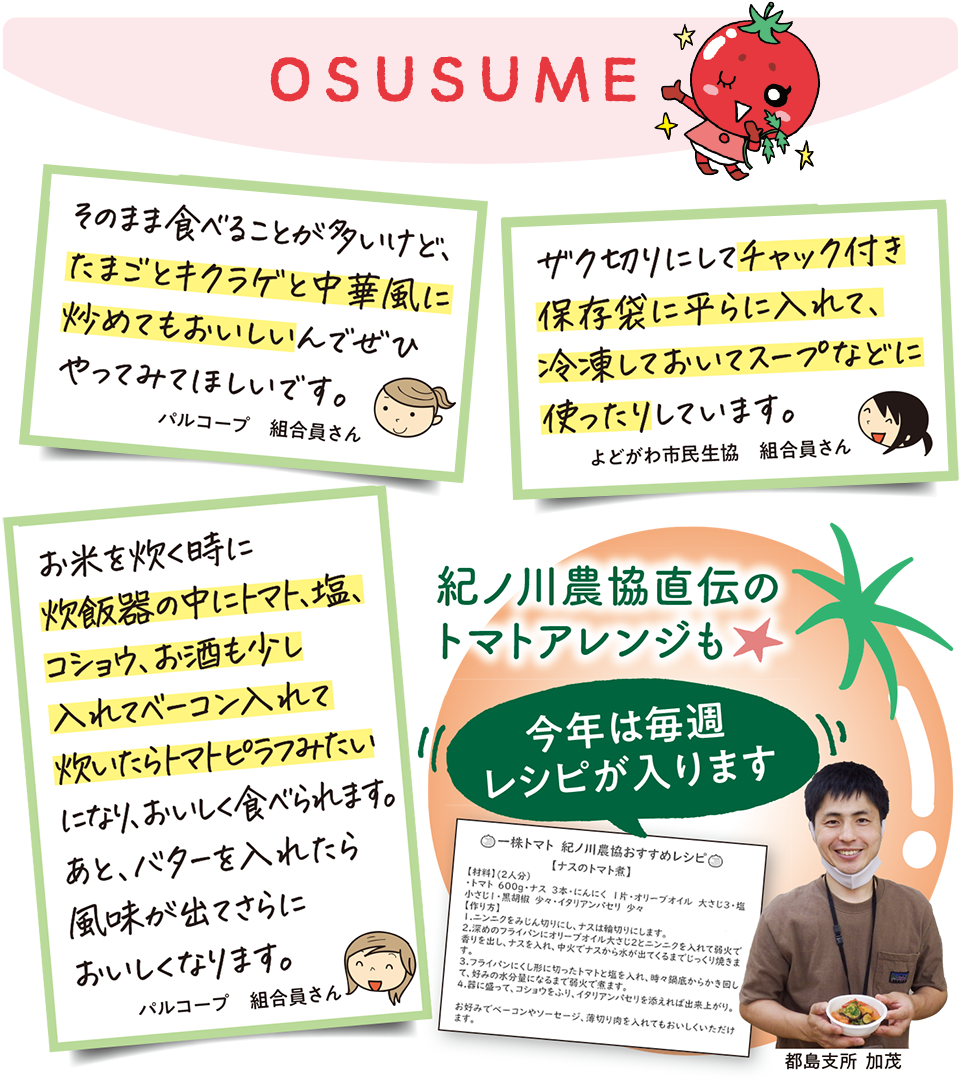 OSUSUME
そのまま食べることが多いけど、
たまごとキクラゲと中華風に
炒めてもおいしいんでぜひ
やってみてほしいです。
パルコープ 組合員さん
ザク切りにしてチャック付き
保存袋に平らに入れて、
冷凍しておいてスープなどに
使ったりしています。
よどがわ市民生協 組合員さん
お米を炊く時に
炊飯器の中にトマト、塩、
コショウ、お酒も少し
入れてベーコン入れて
炊いたらトマトピラフみたい
になり、おいしく食べられます。
あと、バターを入れたら
風味が出てさらに
おいしくなります。
パルコープ 組合員さん
紀ノ川農協直伝の
トマトアレンジも
今年は毎週
レシピが入ります
一株トマト 紀ノ川農協おすすめレシピ
【ナスのトマト煮】
【材料】(2人分)
・トマト 600g・ナス 3本・にんにく 1片・オリーブオイル 大さじ3・塩
小さじ1・黒胡椒 少々・イタリアンパセリ 少々
【作り方】
1.ニンニクをみじん切りにし、ナスは輪切りにします。
2.深めのフライパンにオリーブオイル大さじ2とニンニクを入れて弱火で
香りを出し、ナスを入れ、中火でナスから水が出てくるまでじっくり焼きま
す。
3.フライパンにくし形に切ったトマトと塩を入れ、時々鍋底からかき回し
て、好みの水分量になるまで弱火で煮ます。
4.器に盛って、コショウをふり、イタリアンパセリを添えれば出来上がり。
お好みでベーコンやソーセージ、薄切り肉を入れてもおいしくいただけ
ます。
都島支所 加茂